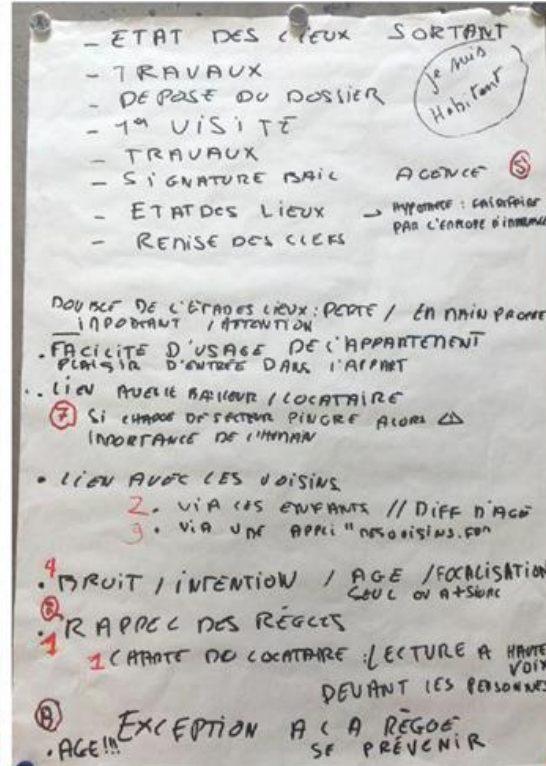 - ETAT DES LIEUX SORTANT
je suis
Habitant
- TRAVAUX
- DEPOSE DU DOSSIER
- 1ère VISITE
- TRAVAUX
- SIGNATURE BAIL AGENCE 5
- ETAT DES LIEUX →
PAR L'ENROPE D'
- REMISE DES CLEFS
DOUBLE DE L'ETADES LIEUX : PERTE / EN MAIN PROPRE
IMPORTANT / ATTENTION
. FACILITÉ D'USAGE DE L'APPARTEMENT
PLAISIR D'ENTRÉE DANS L'APPART
.. LIEN BAILLEUR / LOCATAIRE
7 SI CHARGÉ DE SECTEUR PINGRE ALORS ⚠
IMPORTANCE DE L'HUMAIN
• LIEN AVEC LES VOISINS
2. VIA LES ENFANTS // DIFF D'AGE
3. VIA UNE APPLI "
4
. BRUIT / INTENTION / AGE / FOCALISATION
SEUL OU
6
. RAPPEL DES RÈGLES
1
1 CHARTE DU LOCATAIRE : LECTURE A HAUTE
VOIX
DEVANT LES PERSONNES
8 EXCEPTION A LA RÈGLE
. AGE!!! SE PRÉVENIR